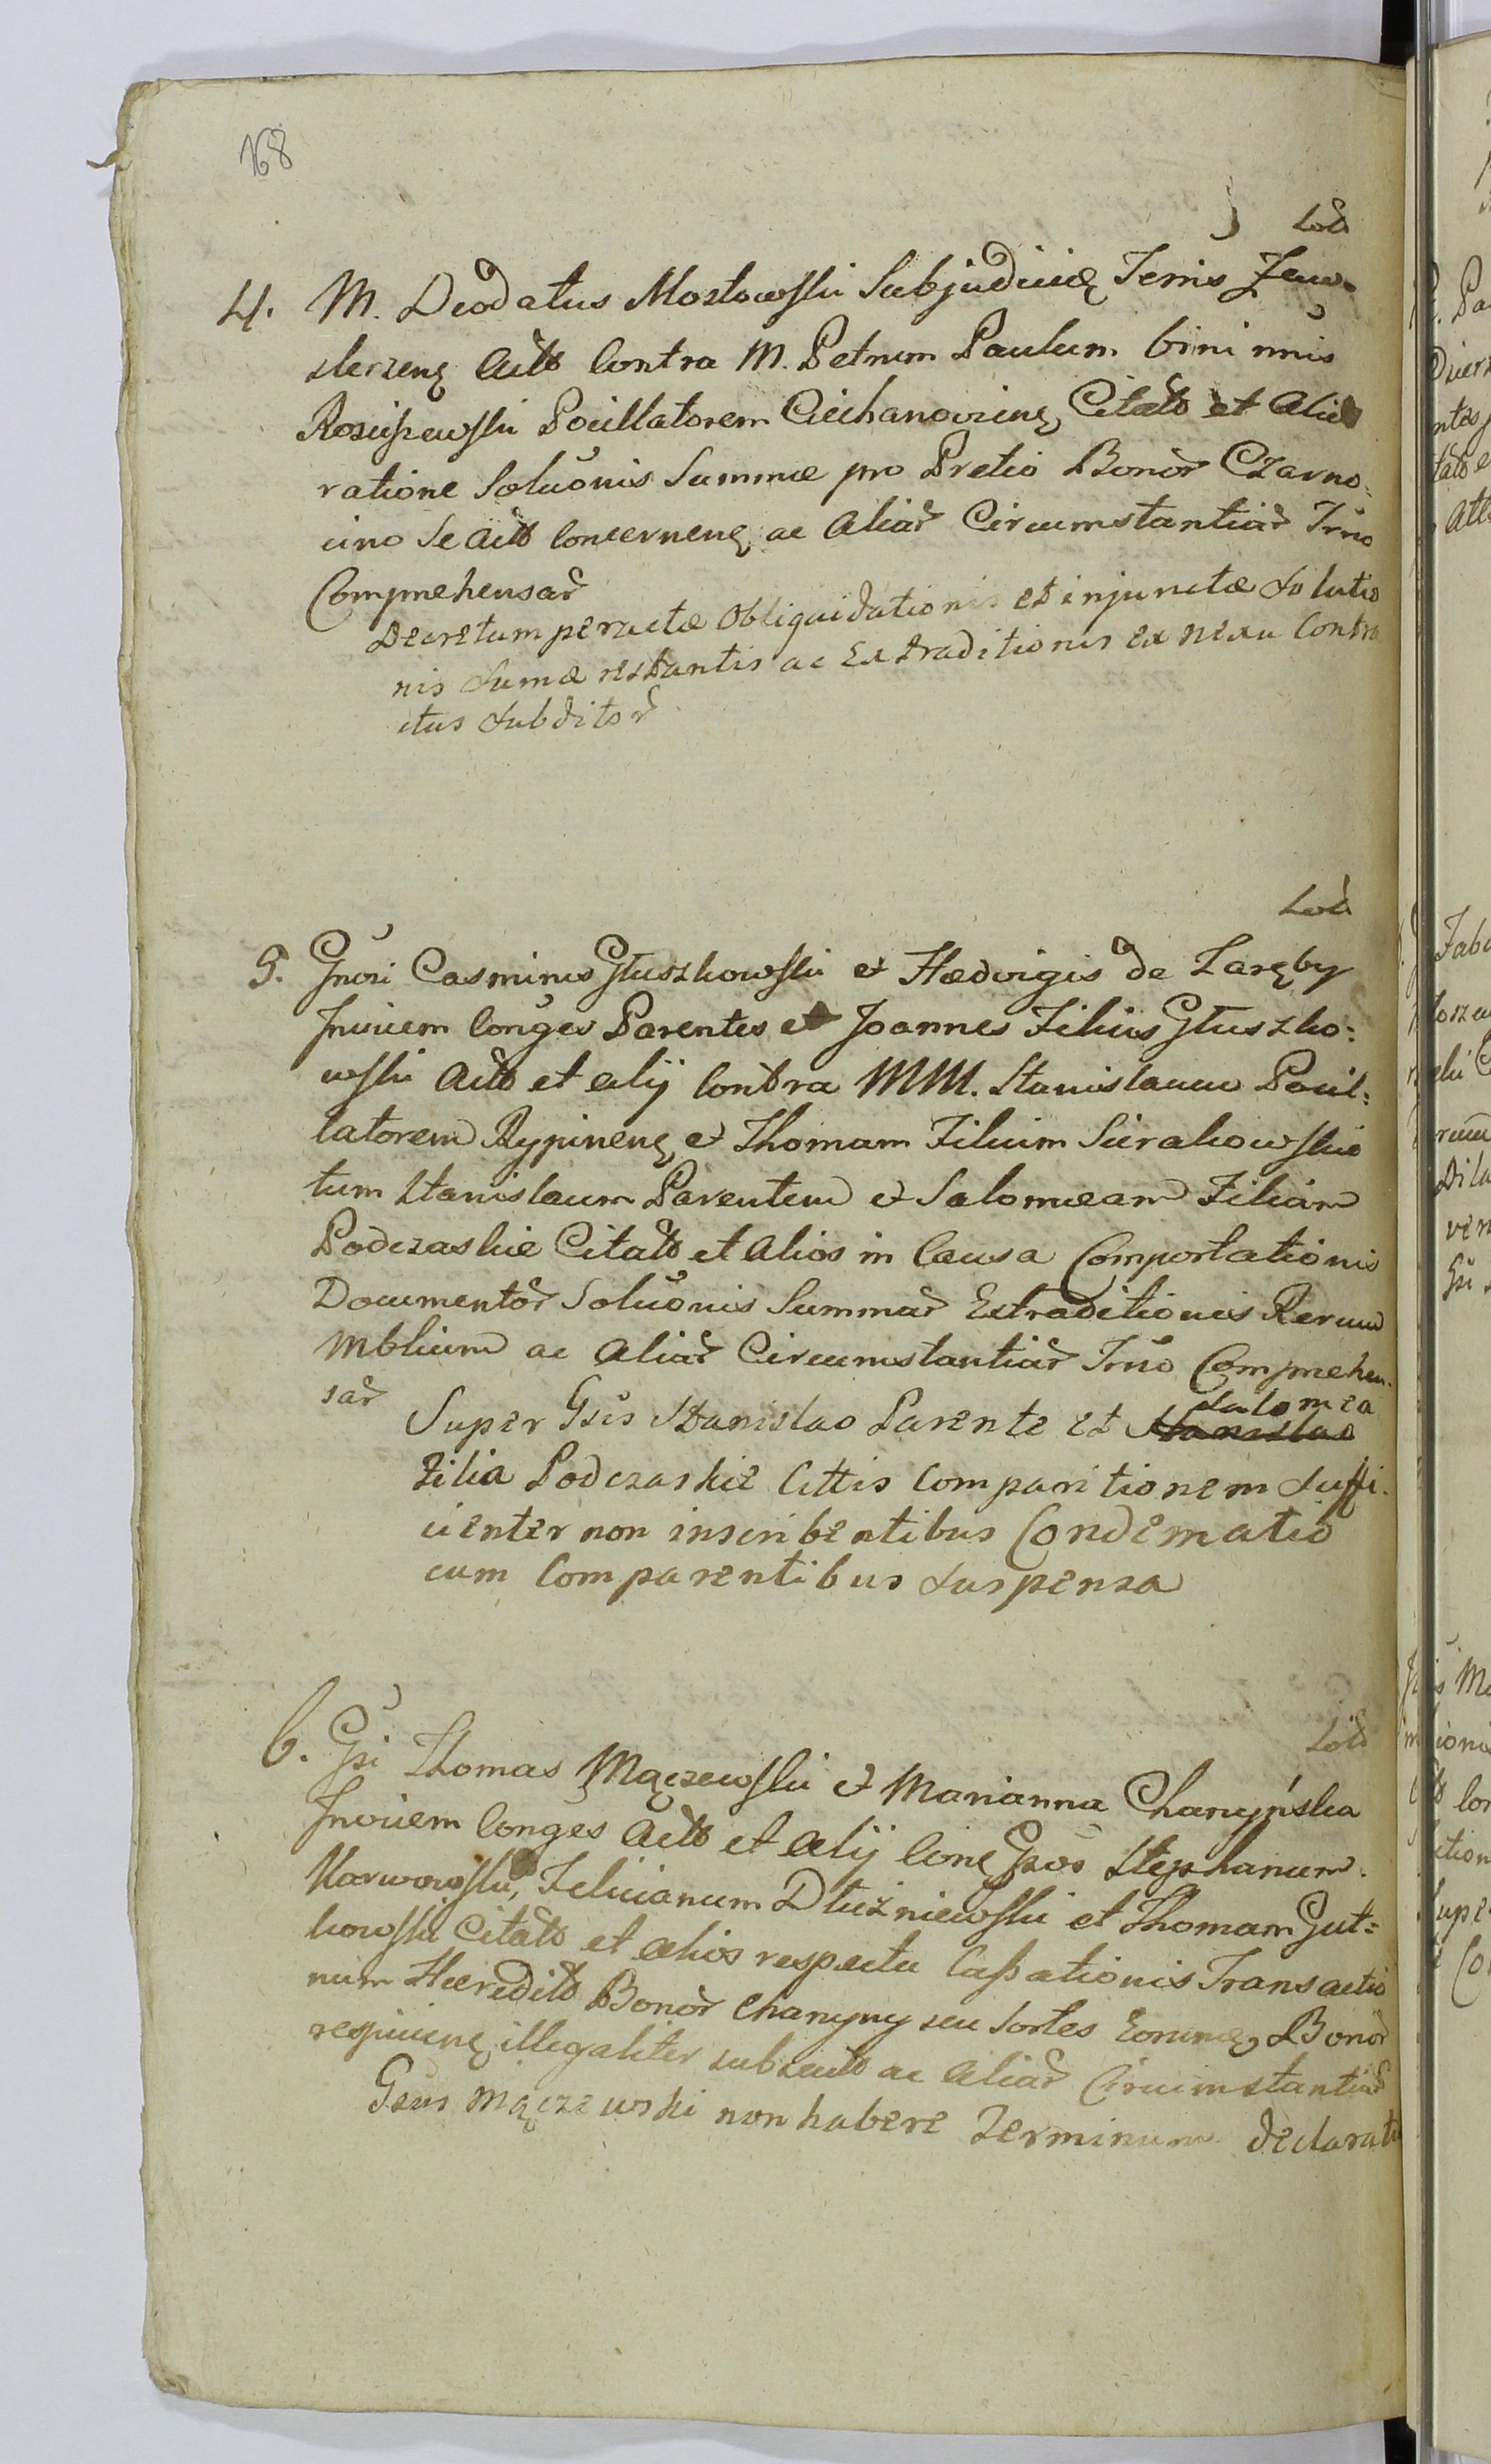 168
4. M. Deodatus Mostowski Subjudicię Terris Zaw-
skrzenę Acto Contra M. Petrum Paulum bini nnis
Rosciszewski Pocillatorem Ciechanoviene Citato et Alio
ratione Soluonis Summæ pro Pretio Bonor Czarno-
cino Se Acto Concernenę ac Aliar Circumstantiar Trno
Comprehensar
Decretum peractæ Obliquidationis et injunctæ Solutio
nis Sumæ restantis ac Extraditionis ex nexu Contra
ctus Subditor
5. Gnosi Casimirus Głuszkowski et Hædvigis de Zaręby
Invicem Conges Parentes et Joannes Filius Głuszko:
wski Acto et alij Contra MM. Stanislaum Pocil:
latorem Rypinenę et Thomam Filium Sierakowskie
tum Stanislaum Parentem et Salomeam Filiam
Podczaskie Citato et Alios in Causa Comportationis
Documentor Soluonis Summar Extraditionis Rerum
Mblium ac Aliar Circumstantiar Trno Comprehen-
sar
Super Gsis Stanislao Parente et Salomea
Filia Podczaskie Cittis Comparitionem Suffi-
cienter non inscribentibus Condematio
cum Comparentibus Suspensa
6. Gsi Thomas Mączewski et Marianna Charzyńska
Invicem Conges Acto et Alij Conę Gsos Stephanum
Karwowski, Felicianum Dłużniewski et Thomam Gut=
kowski Citato et alios respectu Cassationis Transactio
num Heredito Bonor Charzyny seu Sortes Eorumę Bonor
respicienę illegaliter subsecuto ac Aliar Circumstantiar
Gsus Mączewski non habere Terminum declaratu